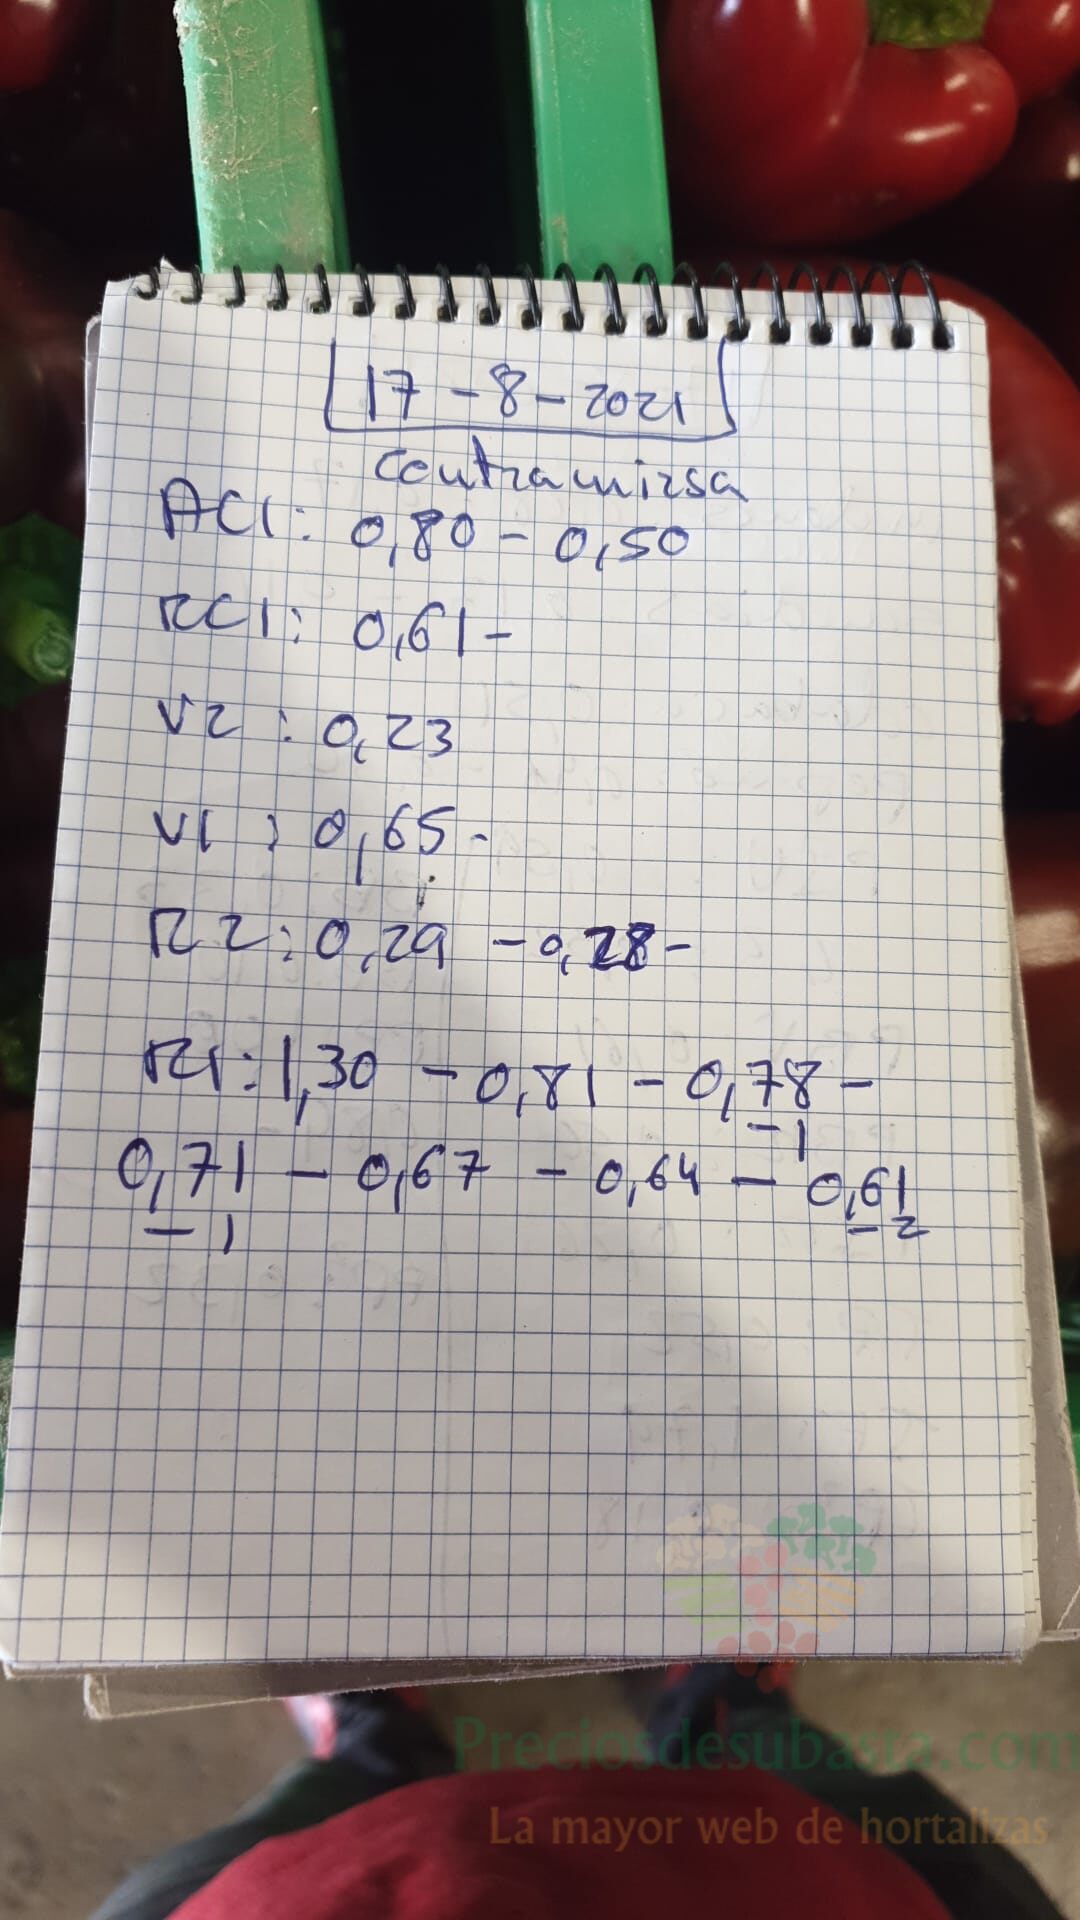 17-8-2021
Centramirsa
AC1: 0,80 - 0,50
RC1: 0,61 -
V2 : 0,23
V1 : 0,65 -
R2 : 0,29 - 0,28 -
R1 : 1,30 - 0,81 - 0,78 -
- 1
0,71 - 0,67 - 0,64 - 0,61
- 1 - 2
Preciosdesubasta.com
La mayor web de hortalizas